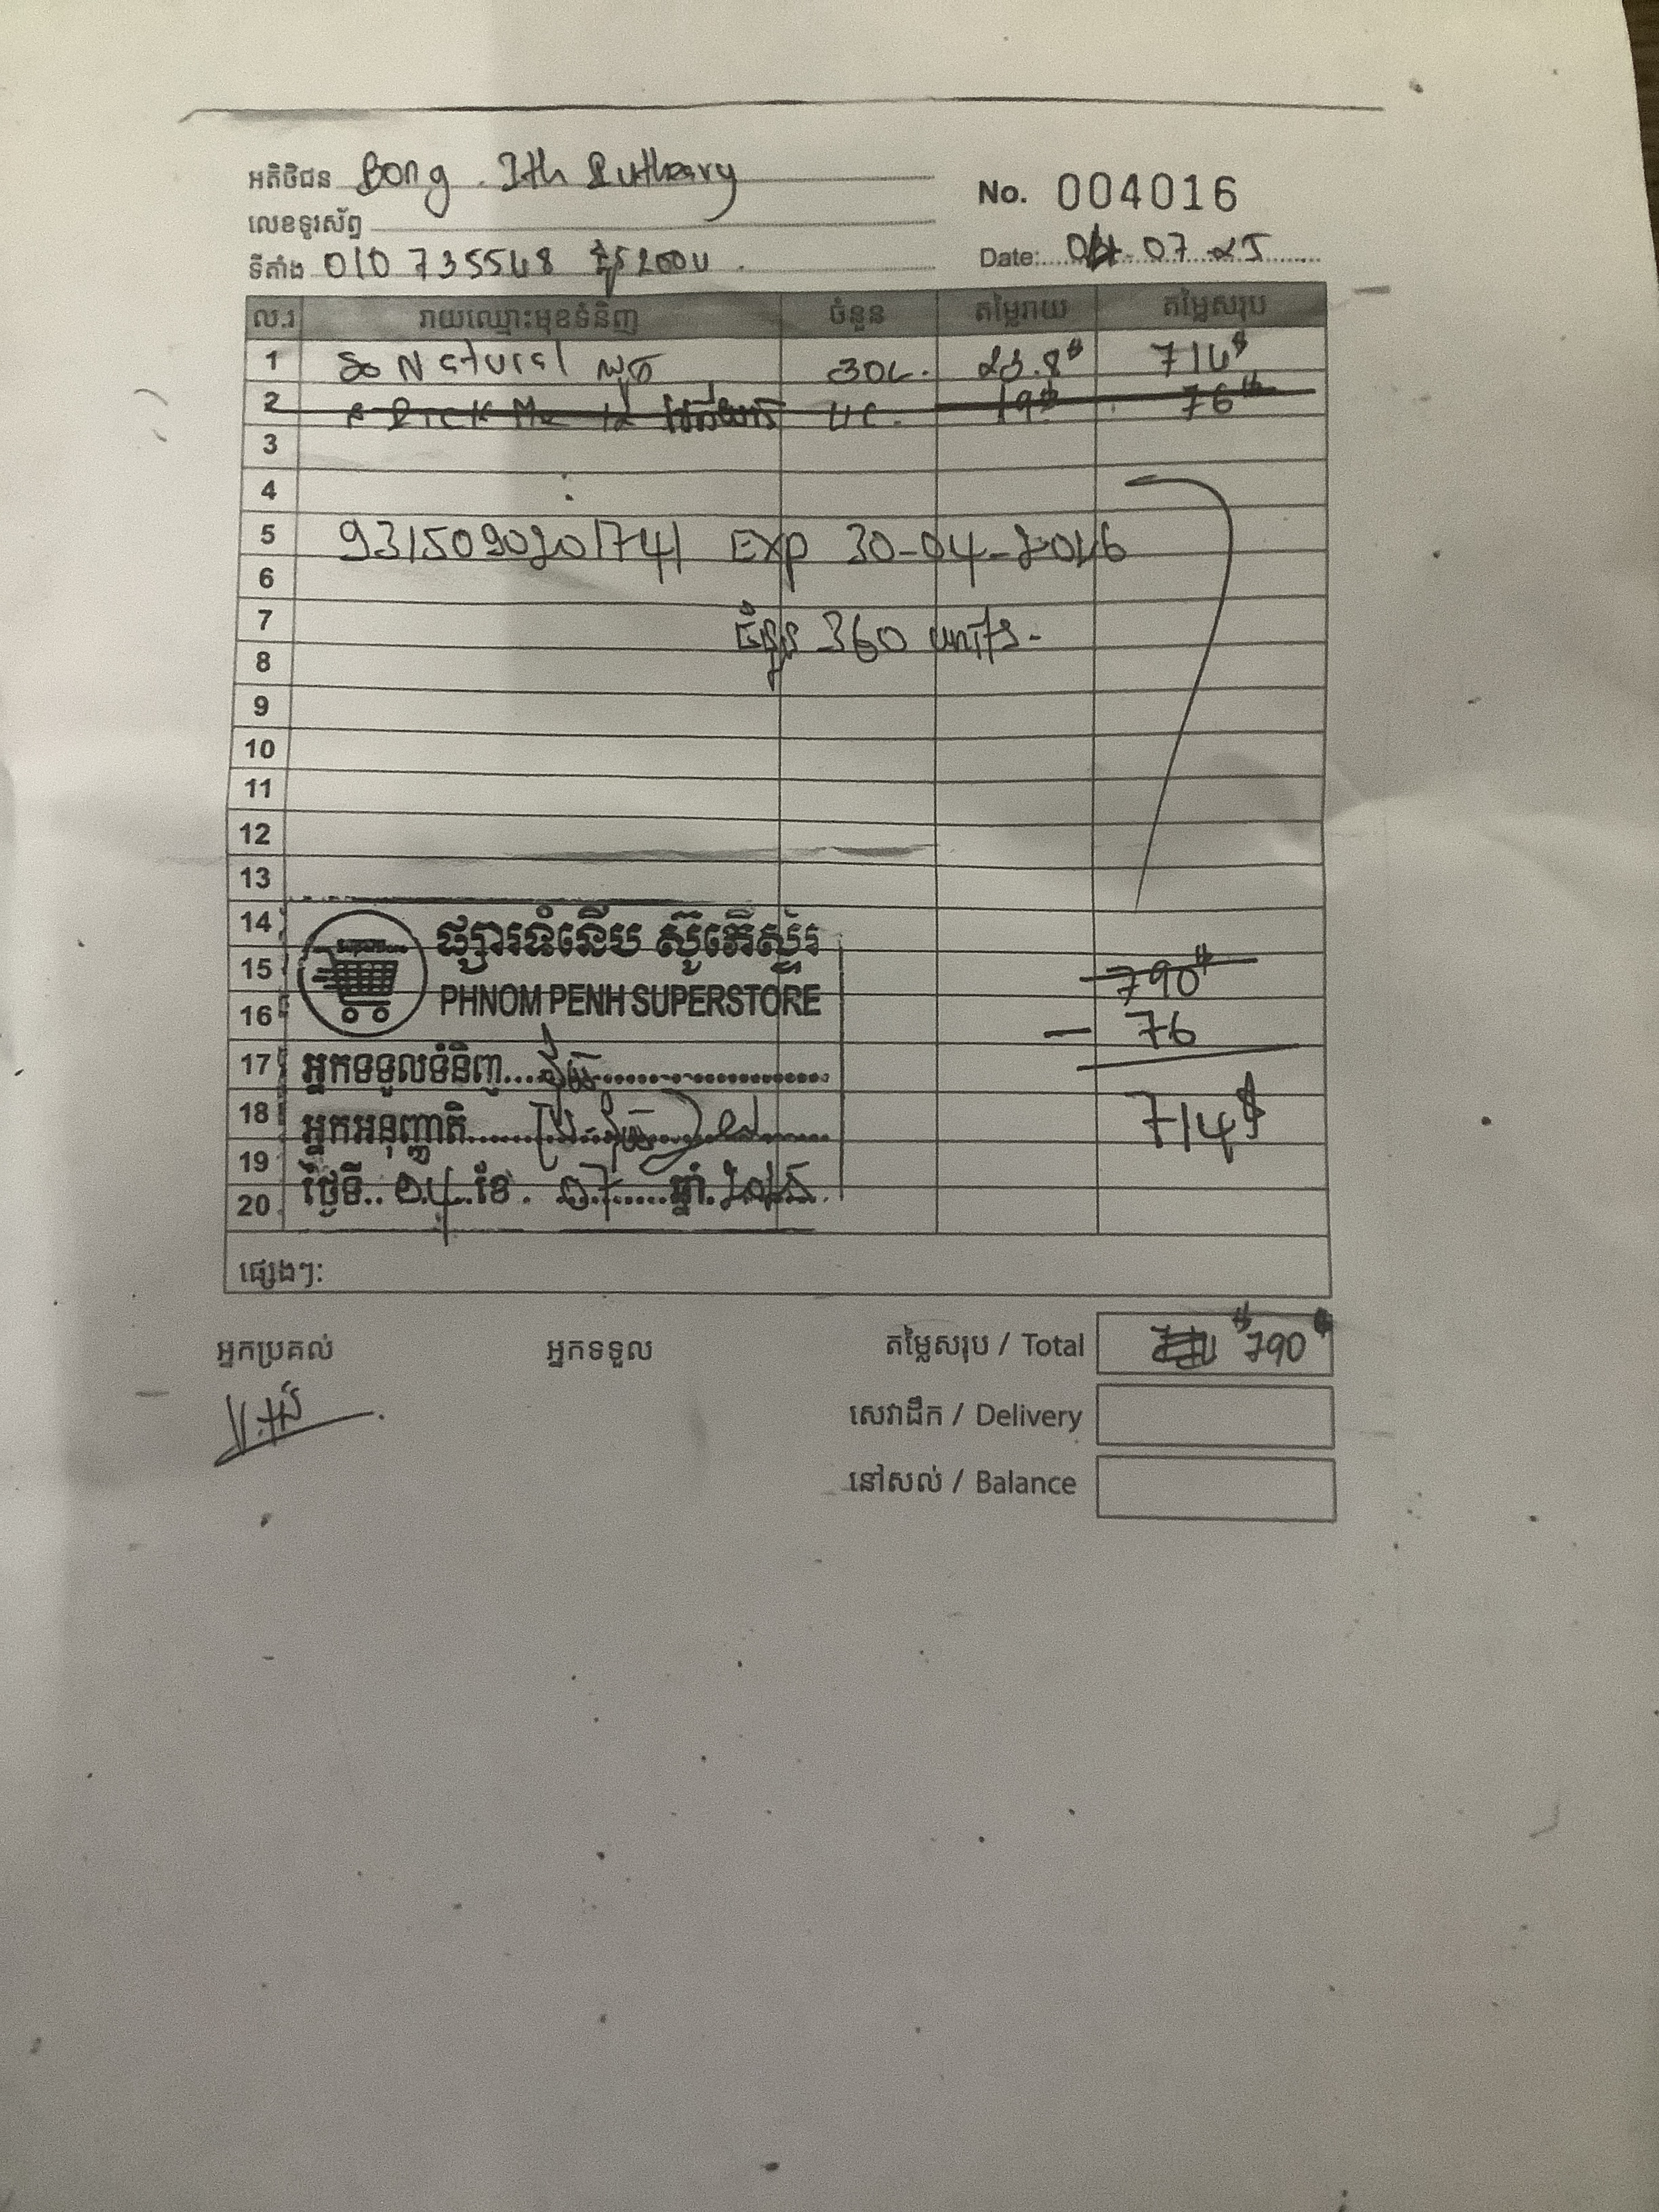 អតិថិជន Bong . Ith Putheary
No. 004016
លេខទូរស័ព្ទ
ទីតាំង 010 735548 ផ្លូវ 200
Date: 04-07-25
ល.រ រាយឈ្មោះមុខទំនិញ ចំនួន តម្លៃរាយ តម្លៃសរុប
1 So Natural 30c. 23.8$ 714$
2 4c. 19$ 76$
3
4
5 9315090201741 Exp 30-04-2026
6
7 ចំនួន 360 units.
8
9
10
11
12
13
14 ផ្សារទំនើប ស៊ូភើស្ទ័រ
15 790$
16 PHNOM PENH SUPERSTORE - 76
17 អ្នកទទួលទំនិញ
18 អ្នកអនុញ្ញាតិ 714$
19
20 ថ្ងៃទី ០៤ ខែ ០៧ ឆ្នាំ ២០២៥
ផ្សេងៗ:
អ្នកប្រគល់ អ្នកទទួល តម្លៃសរុប / Total 790$
សេវាដឹក / Delivery
នៅសល់ / Balance